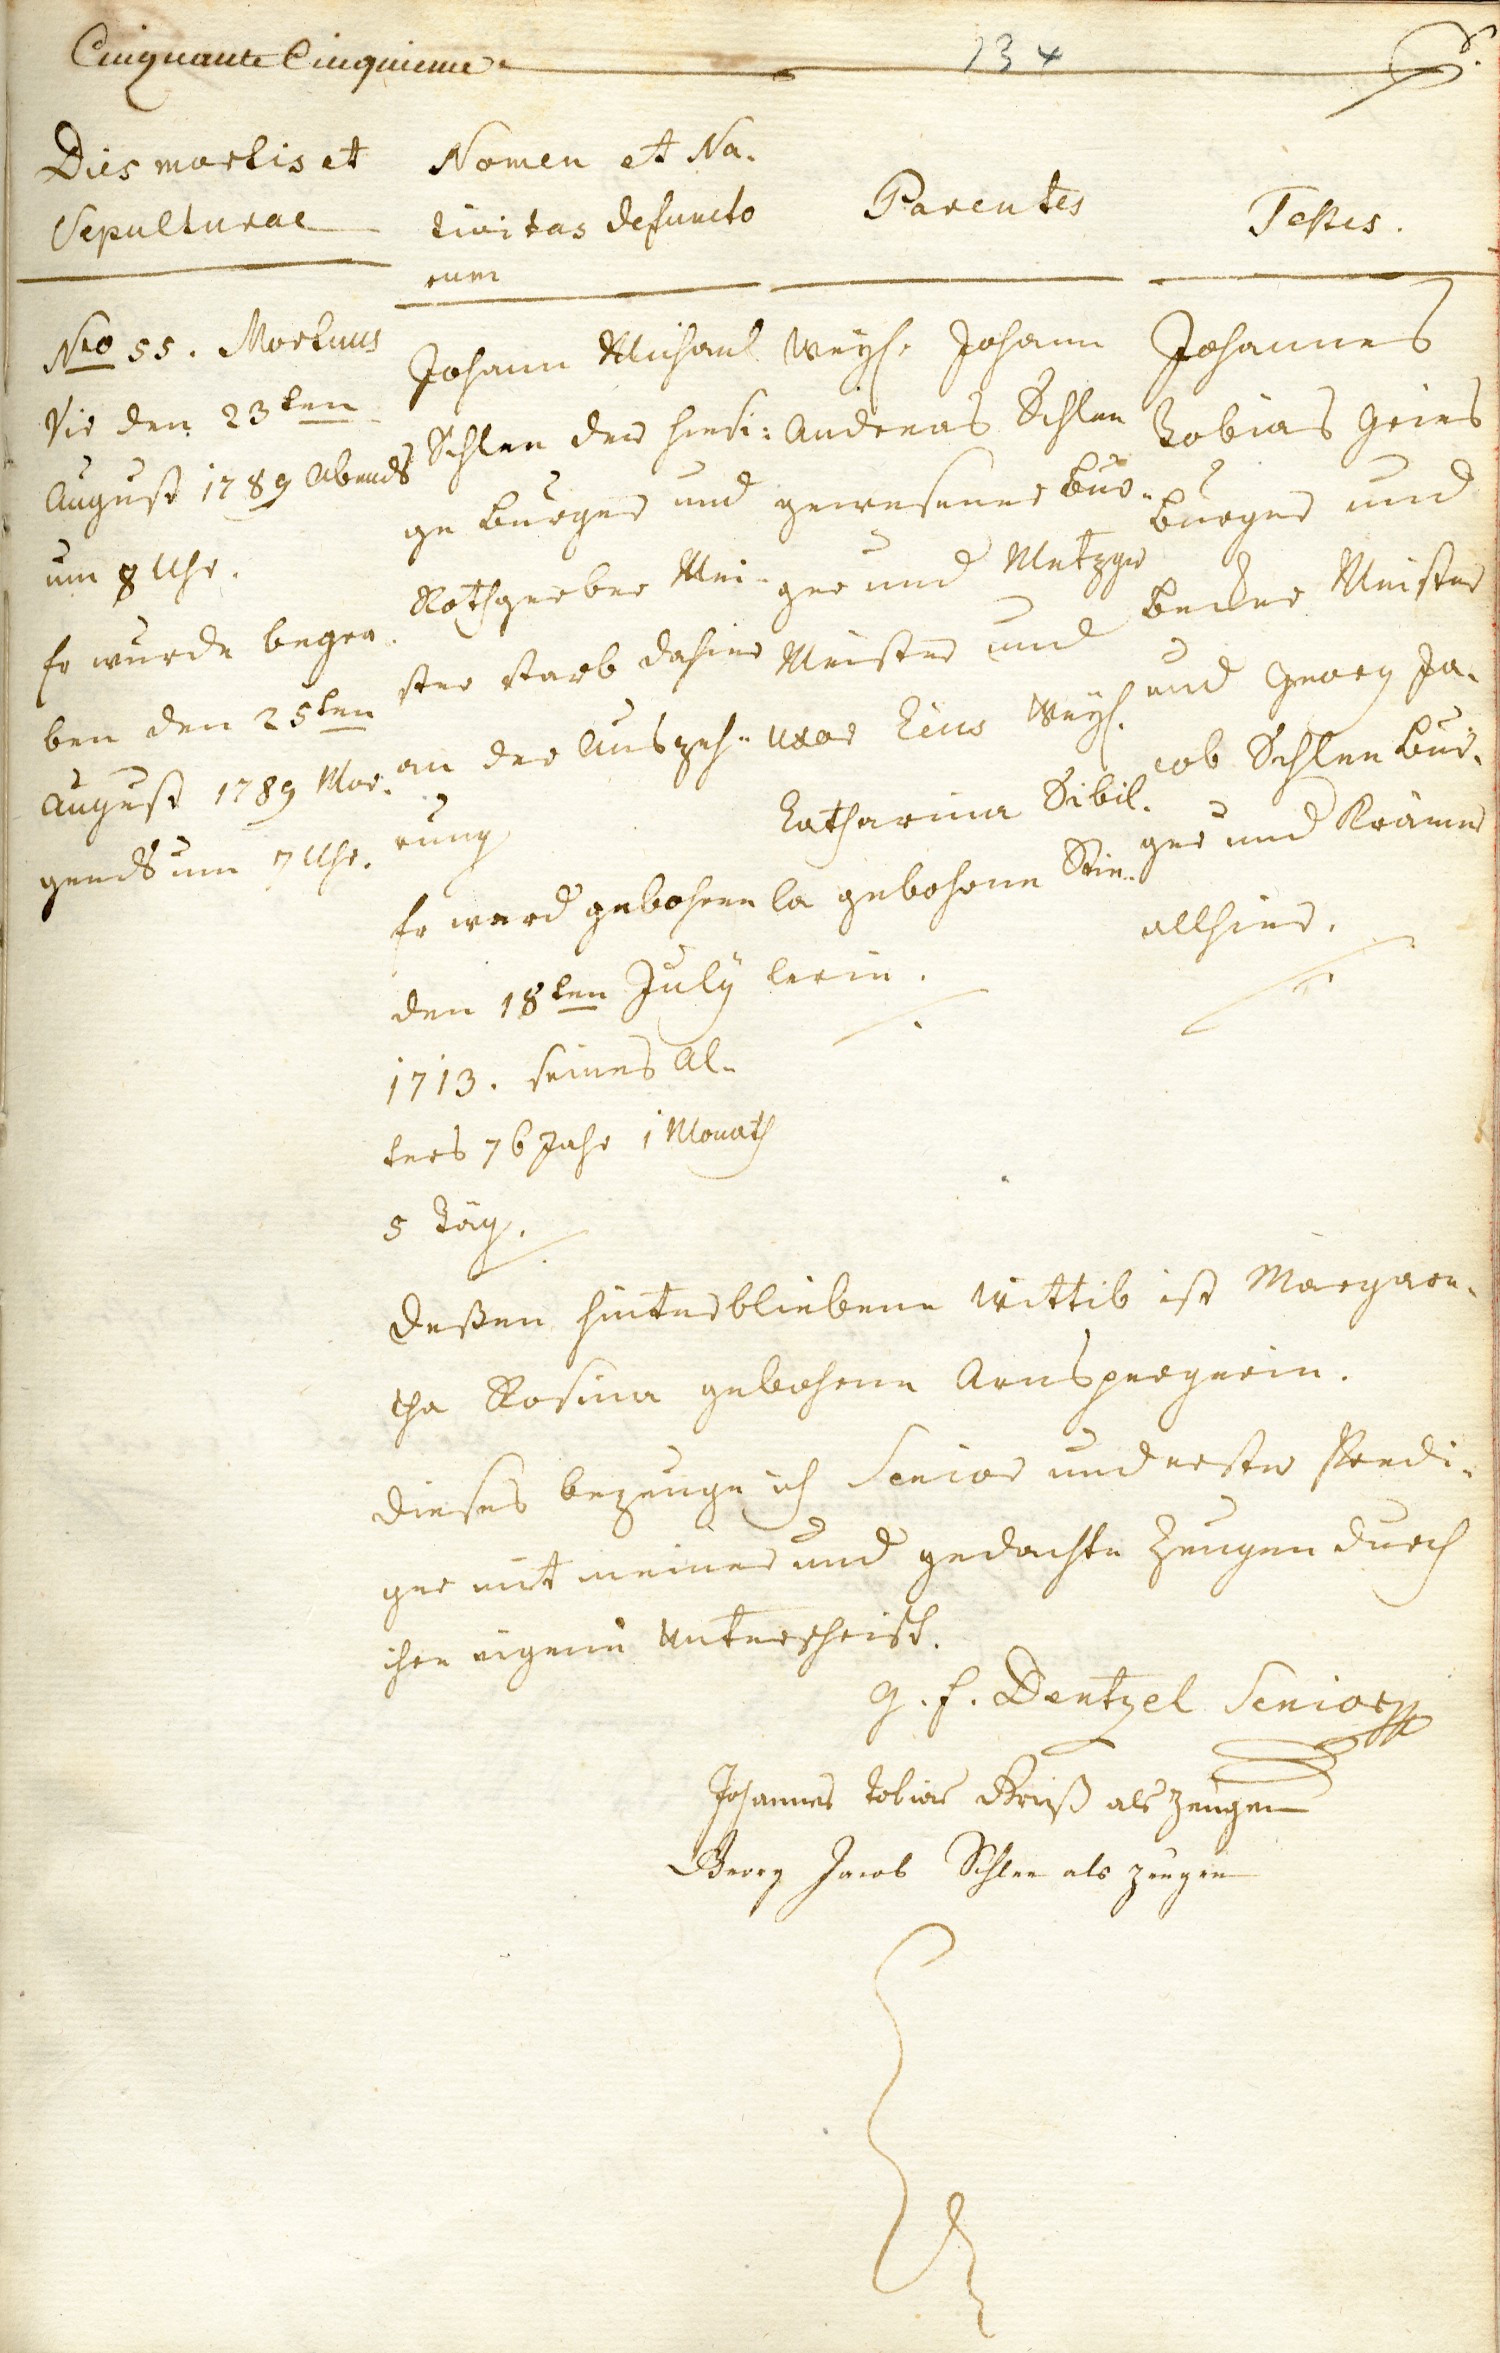 Cinquante Cinquieme
134
Dies mortis et
Sepulturae
Nomen et Na-
tivitas defuncto
rum
Parentes
Testes.
Nro 55. Mortuus
Die den 23ten
August 1789 Abends
um 8 Uhr.
Er wurde begra-
ben den 25ten
August 1789 Mor-
gends um 7 Uhr.
Johann Michael
Schlee der hiesi-
ge Burger und
Rothgerber Mei-
ster starb dahier
an der Auszeh-
rung
Er ward gebohren
den 18ten July
1713. seines Al-
ters 76 Jahr 1 Monath
5 Täg.
Weyl. Johann
Andreas Schlee
gewesener Bur-
ger und Metzger
Meister und
Uxor Eius Weyl.
Catharina Sibil-
la gebohrne Stie-
lerin.
Johannes
Tobias Gries
Burger und
Becker Meister
und Georg Ja-
cob Schlee Bur-
ger und Krämer
allhier.
Deßen hinterbliebene Wittib ist Margare-
tha Rosina gebohrne Arnspergerin.
Dieses bezeuge ich Senior und erster Predi-
ger mit meiner und gedachte Zeugen durch
ihre eigene Unterschrift.
G. F. Dentzel Senior
Johannes Tobias Grieß als zeugen
Georg Jacob Schlee als zeugen